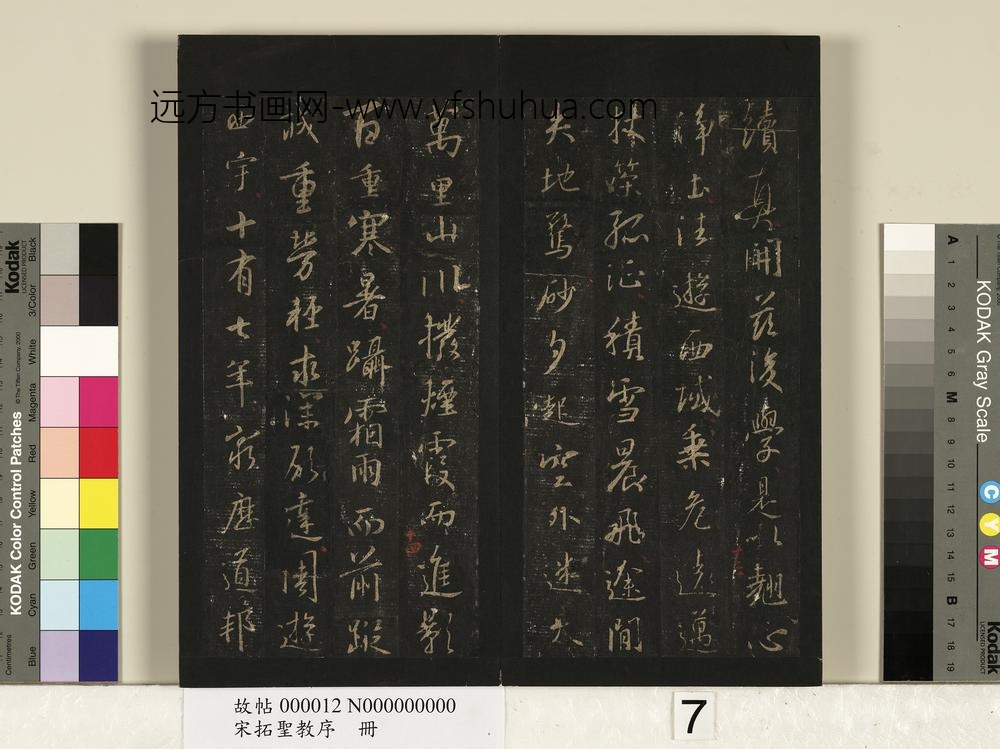 續真開茲後學是以翹心
淨土往遊西域乘危遠邁
杖策孤征積雪晨飛途間
失地驚砂夕起空外迷天
萬里山川撥煙霞而進影
百重寒暑躡霜雨而前蹤
誠重勞輕求深願達周遊
西宇十有七年窮歷道邦
远方书画网-www.yfshuhua.com
故帖 000012 N000000000
宋拓聖教序 冊
7
Kodak
LICENSED PRODUCT
KODAK Color Control Patches
© The Tiffen Company, 2000
Centimetres
Blue
Cyan
Green
Yellow
Red
Magenta
White
3/Color
Black
KODAK Gray Scale
A 1 2 3 4 5 6 M 8 9 10 11 12 13 14 15 B 17 18 19
C
Y
M
Kodak
LICENSED PRODUCT